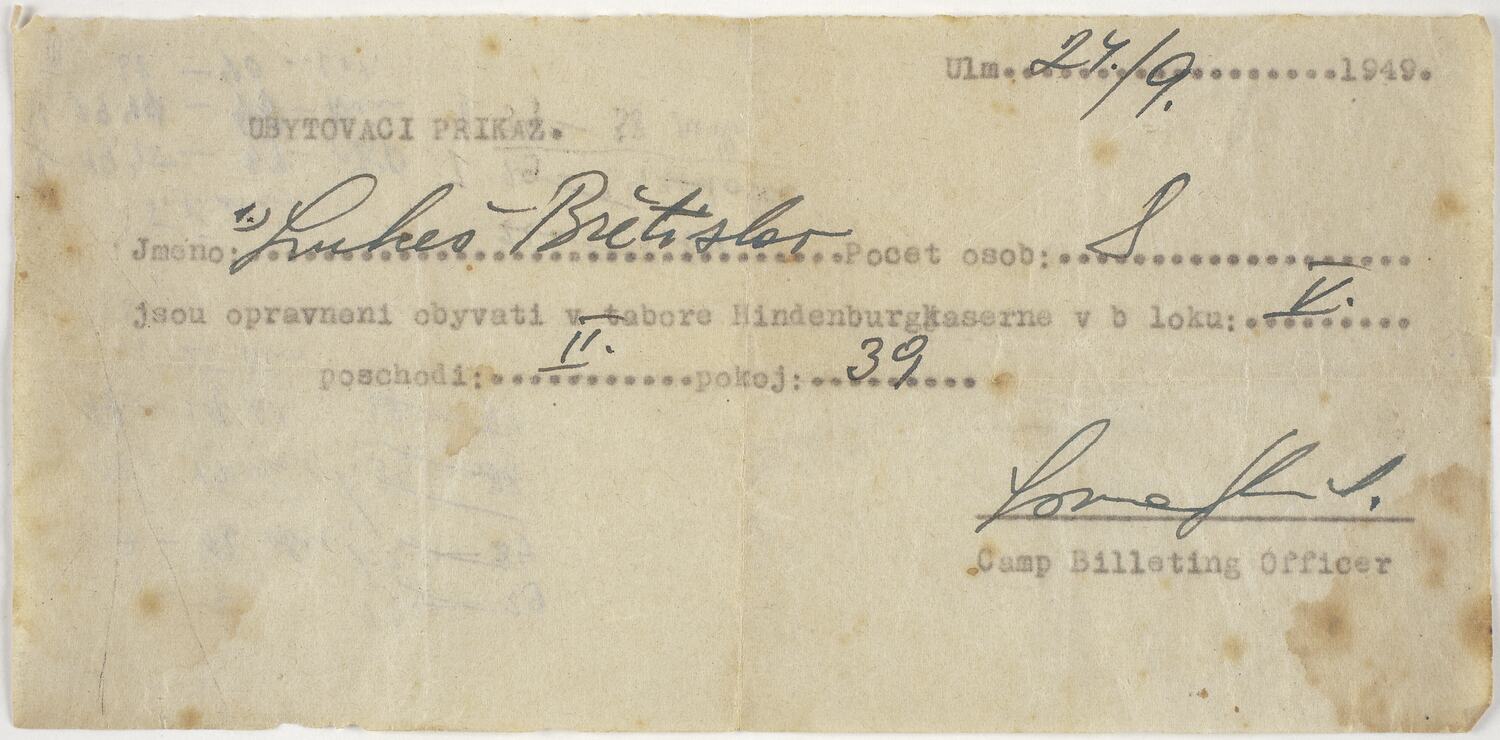 Ulm. 24./9. 1949.
UBYTOVACI PRIKAZ.
1.) Lukeš Břetislav
Jmeno: Pocet osob: 8
jsou opravneni obyvati v tabore Hindenburgkaserne v b loku: V.
poschodi: II. pokoj: 39
Camp Billeting Officer